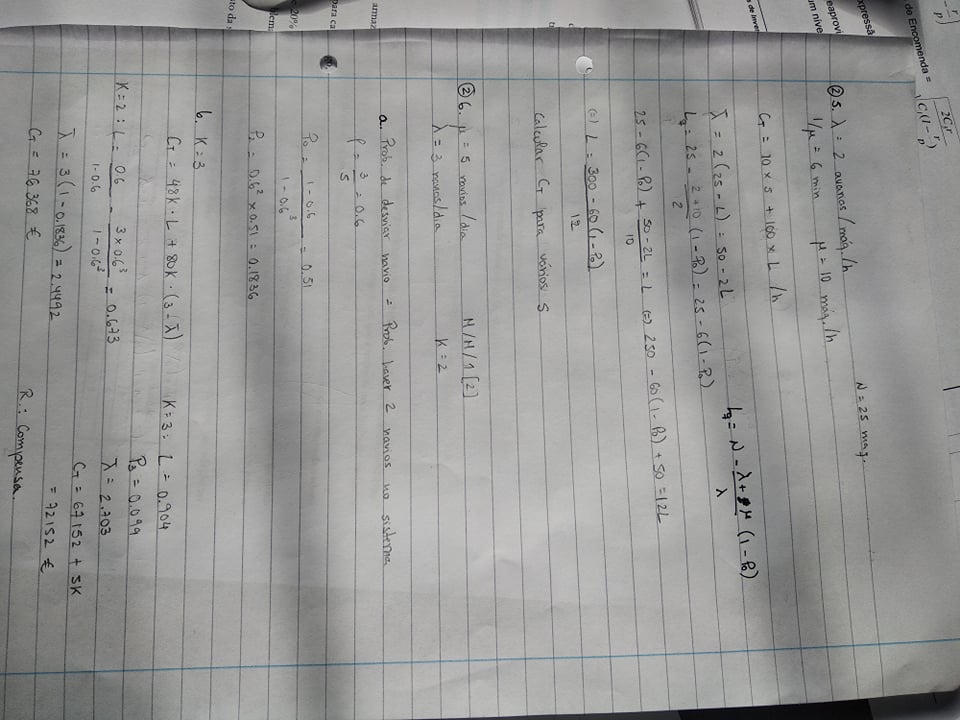 - r/p)
de Encomenda = √(2C₃r / C₁(1 - r/p))
xpressã
eaprovi
um níve
s de Inver
armaz
para ca
e 20%
blema
sto da s
② 5. λ = 2 avarias/máq./h N = 25 maq.
1/μ = 6 min μ = 10 máq./h
C_T = 70 × s + 100 × L /h
λ̄ = 2(25 - L) = 50 - 2L L_q = N - (λ + μ)/λ (1 - P₀)
L_q = 25 - (2+10)/2 (1 - P₀) = 25 - 6(1 - P₀)
25 - 6(1 - P₀) + (50 - 2L)/10 = L (=) 250 - 60(1 - P₀) + 50 = 12L
(=) L = (300 - 60(1 - P₀))/12
Calcular C_T para vários s
② 6. μ = 5 navios/dia M/M/1 [2]
λ = 3 navios/dia K = 2
a. Prob. de desviar navio = Prob. haver 2 navios no sistema
ρ = 3/5 = 0.6
P₀ = (1 - 0.6)/(1 - 0.6³) = 0.51
P₂ = 0.6² × 0.51 = 0.1836
b. K = 3
C_T = 48K · L + 80K · (3 - λ̄) K = 3 : L = 0.904
P₃ = 0.099
K = 2 : L = 0.6/(1 - 0.6) - (3 × 0.6³)/(1 - 0.6³) = 0.673 λ̄ = 2.703
λ̄ = 3(1 - 0.1836) = 2.4492 C_T = 67152 + 5K
= 72152 €
C_T = 76368 €
R.: Compensa.